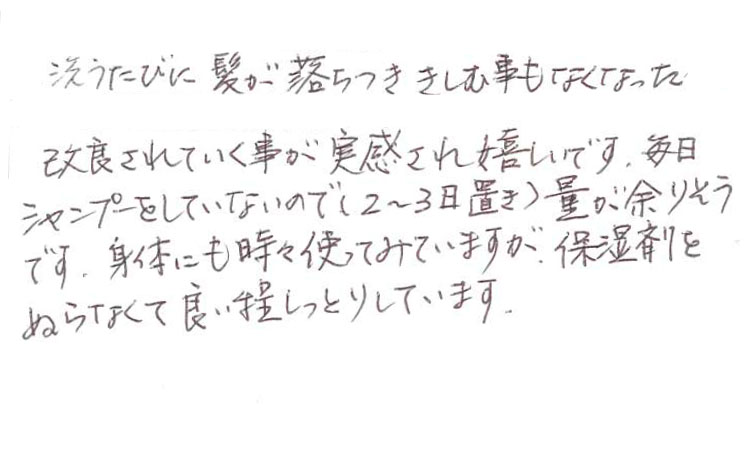 洗うたびに髪が落ちつききしむ事もなくなった
改良されていく事が実感され嬉しいです。毎日
シャンプーをしていないので（2〜3日置き）量が余りそう
です。身体にも時々使ってみていますが、保湿剤を
ぬらなくて良い程しっとりしています。